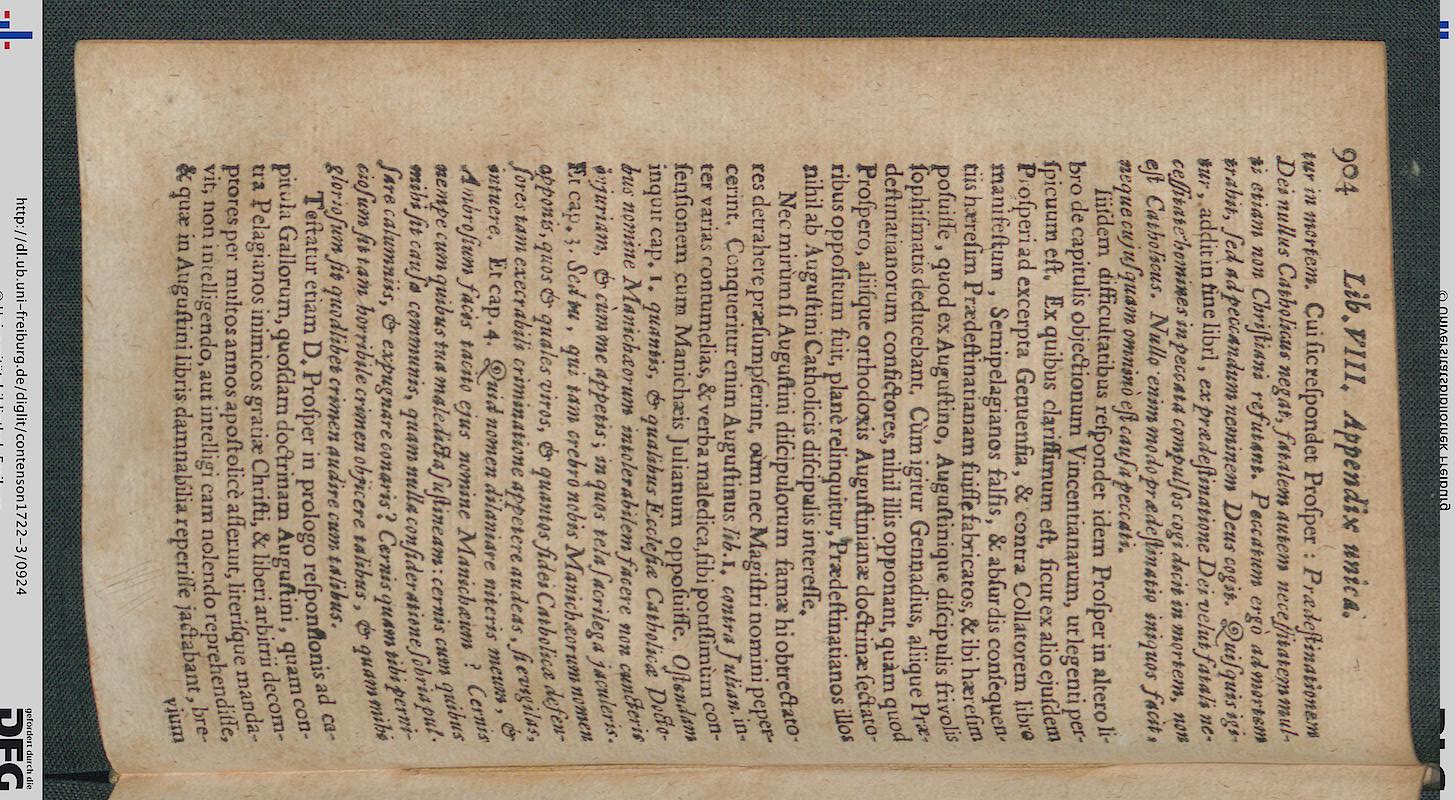 904 Lib. VIII. Appendix unica.
tur in mortem. Cui sic respondet Prosper: Prædestinationem
Dei nullus Catholicus negat, fatalem autem necessitatem mul-
ti etiam non Christiani refutant. Peccatum ergò ad mortem
trahit, sed ad peccandum neminem Deus cogit. Quisquis igi-
tur, addit in fine libri, ex prædestinatione Dei velut fatali ne-
cessitate homines in peccata compulsos cogi dicit in mortem, non
est Catholicus. Nullo enim modo prædestinatio iniquos facit,
neque cujusquam omninò est causa peccati.
Iisdem difficultatibus respondet idem Prosper in altero li-
bro de capitulis objectionum Vincentianarum, ut legenti per-
spicuum est. Ex quibus clarissimum est, sicut ex alio ejusdem
Prosperi ad excerpta Genuensia, & contra Collatorem libro
manifestum, Semipelagianos falsis, & absurdis consequen-
tiis hæresim Prædestinatianam fuisse fabricatos, & ibi hæresim
posuisse, quod ex Augustino, Augustinique discipulis frivolis
sophismatis deducebant. Cùm igitur Gennadius, aliique Præ-
destinatianorum confictores, nihil illis opponant, quàm quod
Prospero, aliisque orthodoxis Augustinianæ doctrinæ sectato-
ribus oppositum fuit, planè relinquitur, Prædestinatianos illos
nihil ab Augustini Catholicis discipulis interesse.
Nec mirùm si Augustini discipulorum famæ hi obtrectato-
res detrahere præsumpserint, cùm nec Magistri nomini peper-
cerint. Conqueritur enim Augustinus lib. 1. contra Julian. in-
ter varias contumelias, & verba maledica, sibi potissimùm con-
sensionem cum Manichæis Julianum opposuisse. Ostendam
inquit cap. 1. quantis, & qualibus Ecclesiæ Catholicæ Docto-
bus nomine Manichæorum intolerabilem facere non cuncteris
injuriam, & cùm me appetis; in quos tela sacrilega jaculeris.
Et cap. 3. Sed tu, qui tam crebro nobis Manichæorum nomen
opponis, quos & quales viros, & quantos fidei Catholicæ defen-
sores tam execrabili criminatione appetere audeas, si evigilas,
intuere. Et cap. 4. Quid nomen dilaniare niteris meum, &
Ambrosium facis tacito ejus nomine Manichæum? Cernis
nempe cum quibus tua maledicta sustineam: cernis cum quibus
mihi sit causa communis, quam nulla consideratione sobria pul-
sare calumniis, & expugnare conaris? Cernis quam tibi perni-
ciosum sit tam horribile crimen objicere talibus, & quam mihi
gloriosum sit quodlibet crimen audire cum talibus.
Testatur etiam D. Prosper in prologo responsionis ad ca-
pitula Gallorum, quosdam doctrinam Augustini, quam con-
tra Pelagianos inimicos gratiæ Christi, & liberi arbitrii decom-
prores per multos annos apostolicè asseruit, literisque manda-
vit, non intelligendo, aut intelligi eam nolendo reprehendisse,
& quæ in Augustini libris damnabilia reperisse jactabant, bre-
vium
http://dl.ub.uni-freiburg.de/diglit/contenson1722-3/0924
gefördert durch die
DFG